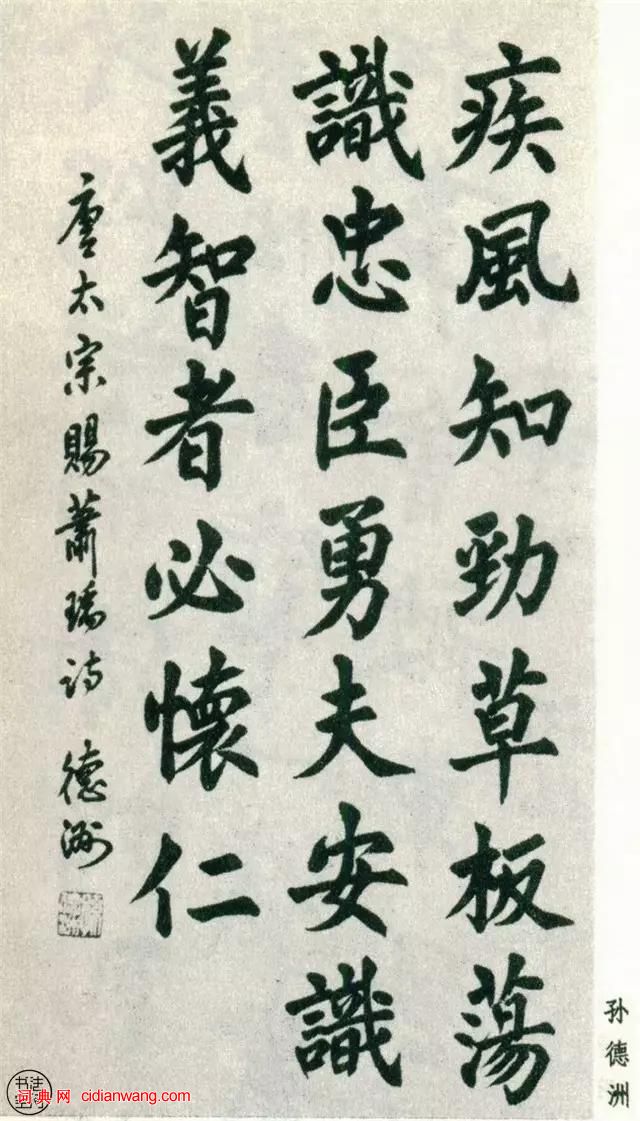 疾風知勁草板蕩
識忠臣勇夫安識
義智者必懷仁
唐太宗賜蕭瑀詩 德洲
孙德洲
词典网 cidianwang.com